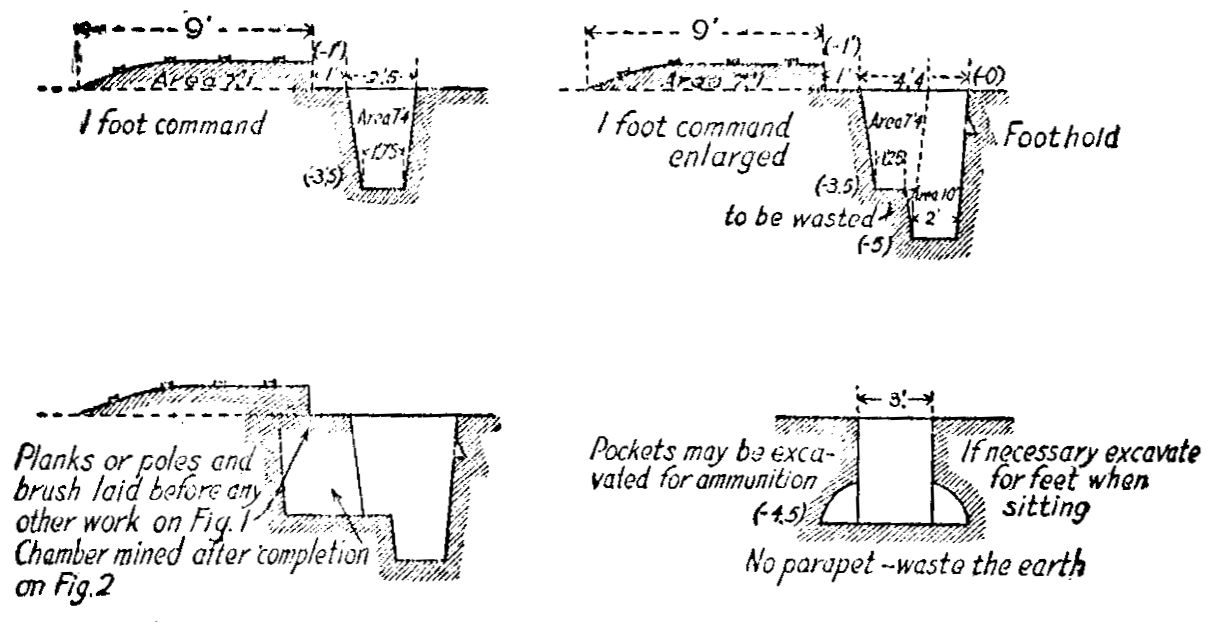 9'
(-1')
Area 7'1
1'
2'.5
1 foot command
Area 7'4
1.75
(-3.5)
9'
(-1')
Area 7'1
1'
4'.4
(-0)
1 foot command
enlarged
Area 7'4
1.25
Foothold
(-3.5)
Area 10'
to be wasted
2'
(-5)
Planks or poles and
brush laid before any
other work on Fig. 1
Chamber mined after completion
on Fig. 2
3'
Pockets may be exca-
vated for ammunition
(-4.5)
If necessary excavate
for feet when
sitting
No parapet - waste the earth